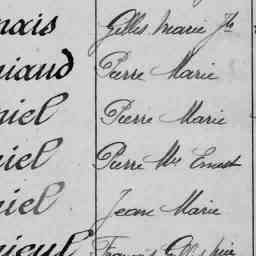 nais Gilles Marie Jh
niaud Pierre Marie
niel Pierre Marie
niel Pierre Mie Ernest
niel Jean Marie
nieul François